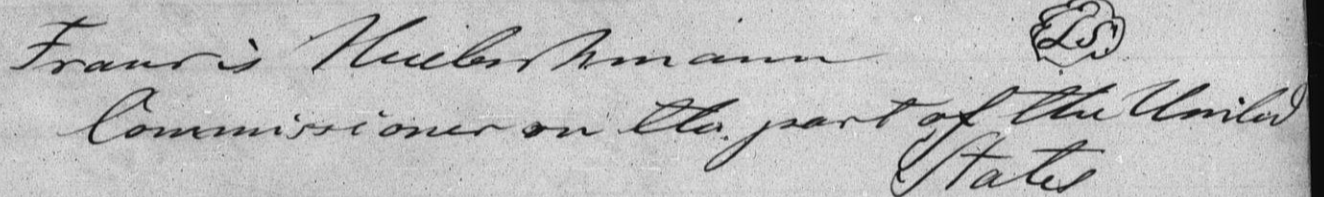 Francis Huebschmann L.S.
Commissioner on the part of the United
States